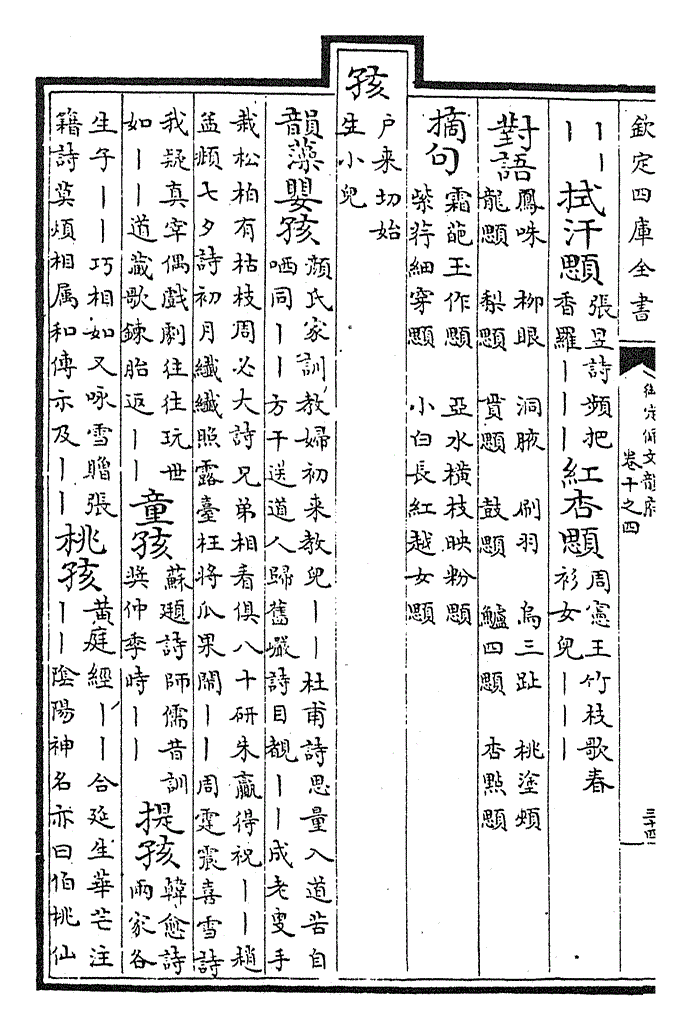 欽定四庫全書
御定佩文韻府
卷十之四
三十四
丨丨
丨
拭汗顋
張昱詩頻把
香羅丨丨丨
紅杏顋
周憲王竹枝歌春
衫女兒丨丨丨
對語
鳳咮 柳眼 洞腋 刷羽 烏三趾 桃塗頰
龍顋 梨顋 賁顋 鼓顋 鱸四顋 杏點顋
摘句
霜葩玉作顋 亞水橫枝映粉顋
紫荇細穿顋 小白長紅越女顋
孩
户来切始
生小兒
韻藻嬰孩
顏氏家訓教婦初来教兒丨丨杜甫詩思量入道苦自
哂同丨丨方干送道人歸舊巖詩目覩丨丨成老叟手
栽松柏有枯枝周必大詩兄弟相看俱八十研朱贏得祝丨丨趙
孟頫七夕詩初月纖纖照露臺枉將瓜果鬧丨丨周霆震喜雪詩
我疑真宰偶戲劇往往玩世
如丨丨道藏歌鍊胎返丨丨
童孩
蘇頲詩師儒昔訓
奬仲季時丨丨
提孩
韓愈詩
兩家各
生子丨丨巧相如又咏雪贈張
籍詩莫煩相属和傳示及丨丨
桃孩
黄庭經丨丨合延生華芒注
丨丨陰陽神名亦曰伯桃仙